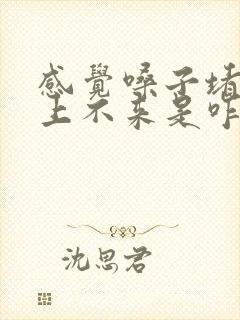 感覺嗓子堵
上不来是咋
沈思君